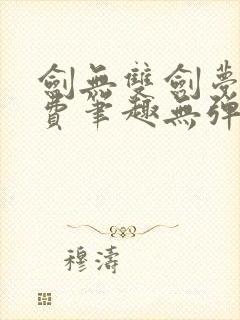 劍無雙劍夢
費筆趣無彈
穆濤